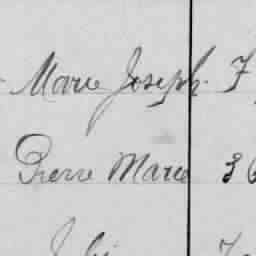 Marie Joseph F
Pierre Marie 36